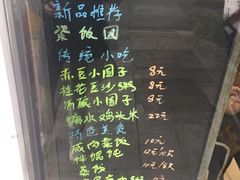 新品推荐
粢饭团
传统小吃
赤豆小圆子 8元
桂花豆沙 8元
酒酿小圆子 8元
糖水鸡头米 22元
特色美食
咸肉菜饭 10元
拌馄饨 12元/
蒸饭 10元/